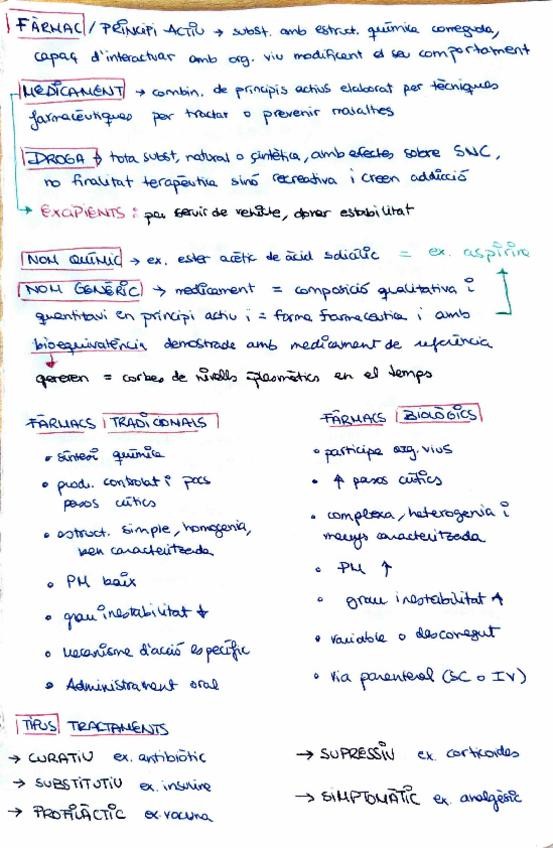 FÀRMAC / PRINCIPI ACTIU → subst. amb estruct. química coneguda,
capaç d'interactuar amb org. viu modificant el seu comportament
MEDICAMENT → combin. de principis actius elaborat per tècniques
farmacèutiques per tractar o prevenir malalties
DROGA → tota subst, natural o sintètica, amb efectes sobre SNC,
no finalitat terapèutica sinó recreativa i creen addicció
→ EXCIPIENTS: per servir de vehicle, donar estabilitat
NOM QUÍMIC → ex. ester acètic de àcid salicílic = ex. aspirina
NOM GENÈRIC → medicament = composició qualitativa i
quantitavi en principi actiu i = forma farmacèutica i amb
bioequivalència demostrada amb medicament de referència
generen = corbes de nivells plasmàtics en el temps
FÀRMACS TRADICIONALS
• síntesi química
• prod. controlat i pocs
passos crítics
• estruct. simple, homogenia,
ben caracteritzada
• PM baix
• grau inestabilitat ↓
• mecanisme d'acció específic
• Administrament oral
FÀRMACS BIOLÒGICS
• participa org. vius
• ↑ passos crítics
• complexa, heterogenia i
menys caracteritzada
• PM ↑
• grau inestabilitat ↑
• variable o desconegut
• Via parenteral (SC o IV)
TIPUS TRACTAMENTS
→ CURATIU ex. antibiòtic
→ SUBSTITUTIU ex. insulina
→ PROFILÀCTIC ex. vacuna
→ SUPRESSIU ex. corticoides
→ SIMPTOMÀTIC ex. analgèsic